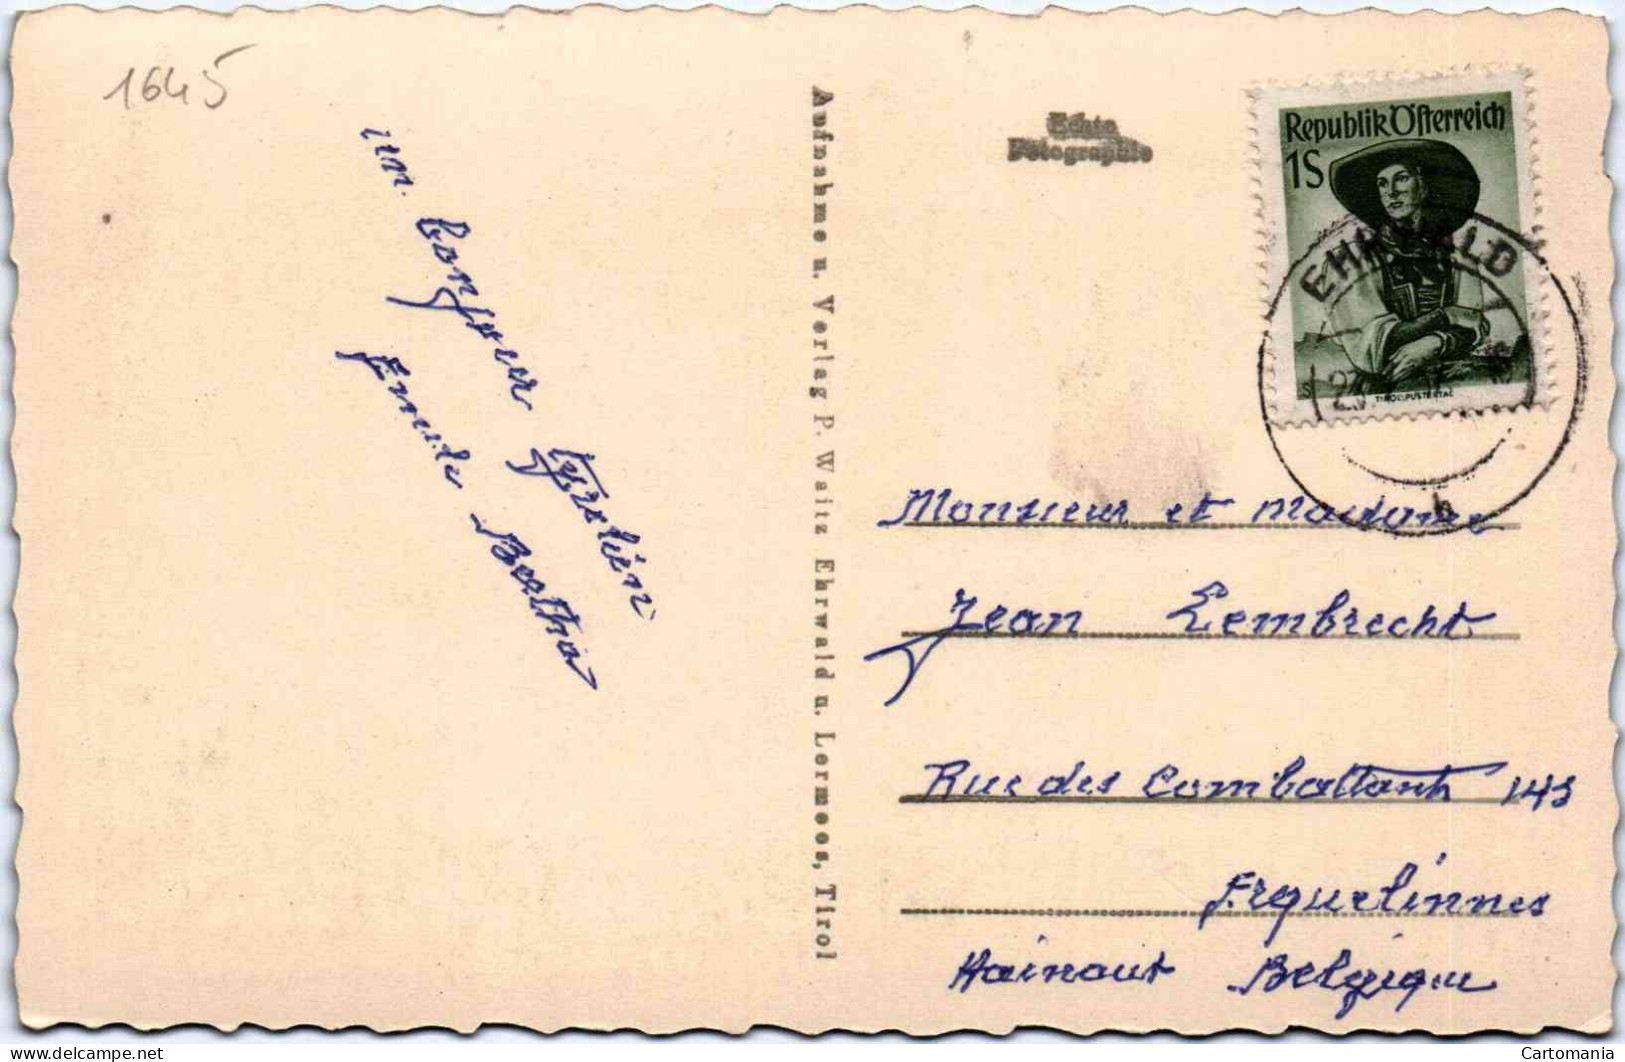 1645
un bonjour Tyrolien
Emile Bertha
Aufnahme u. Verlag P. Waitz Ehrwald u. Lermoos, Tirol
Echte
Fotographie
Republik Österreich
1S
TIROL, PUSTERTAL
EHRWALD
b
Monsieur et Madame
Jean Lembrecht
Rue des Combattants 143
Erquelinnes
Hainaut Belgique
www.delcampe.net
Cartomania